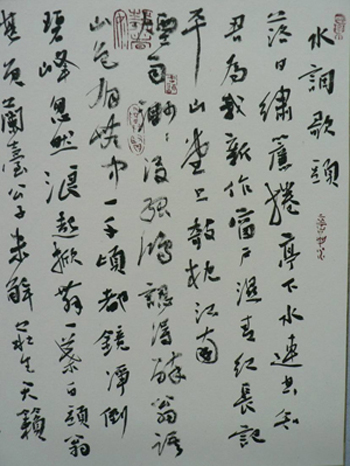 水調歌頭
落日繡簾捲亭下水連空知
君為我新作窗戶濕青紅長記
平山堂上欹枕江南
煙雨渺渺沒孤鴻認得醉翁語
山色有無中一千頃都鏡淨倒
碧峰忽然浪起掀舞一葉白頭翁
堪笑蘭臺公子未解莊生天籟